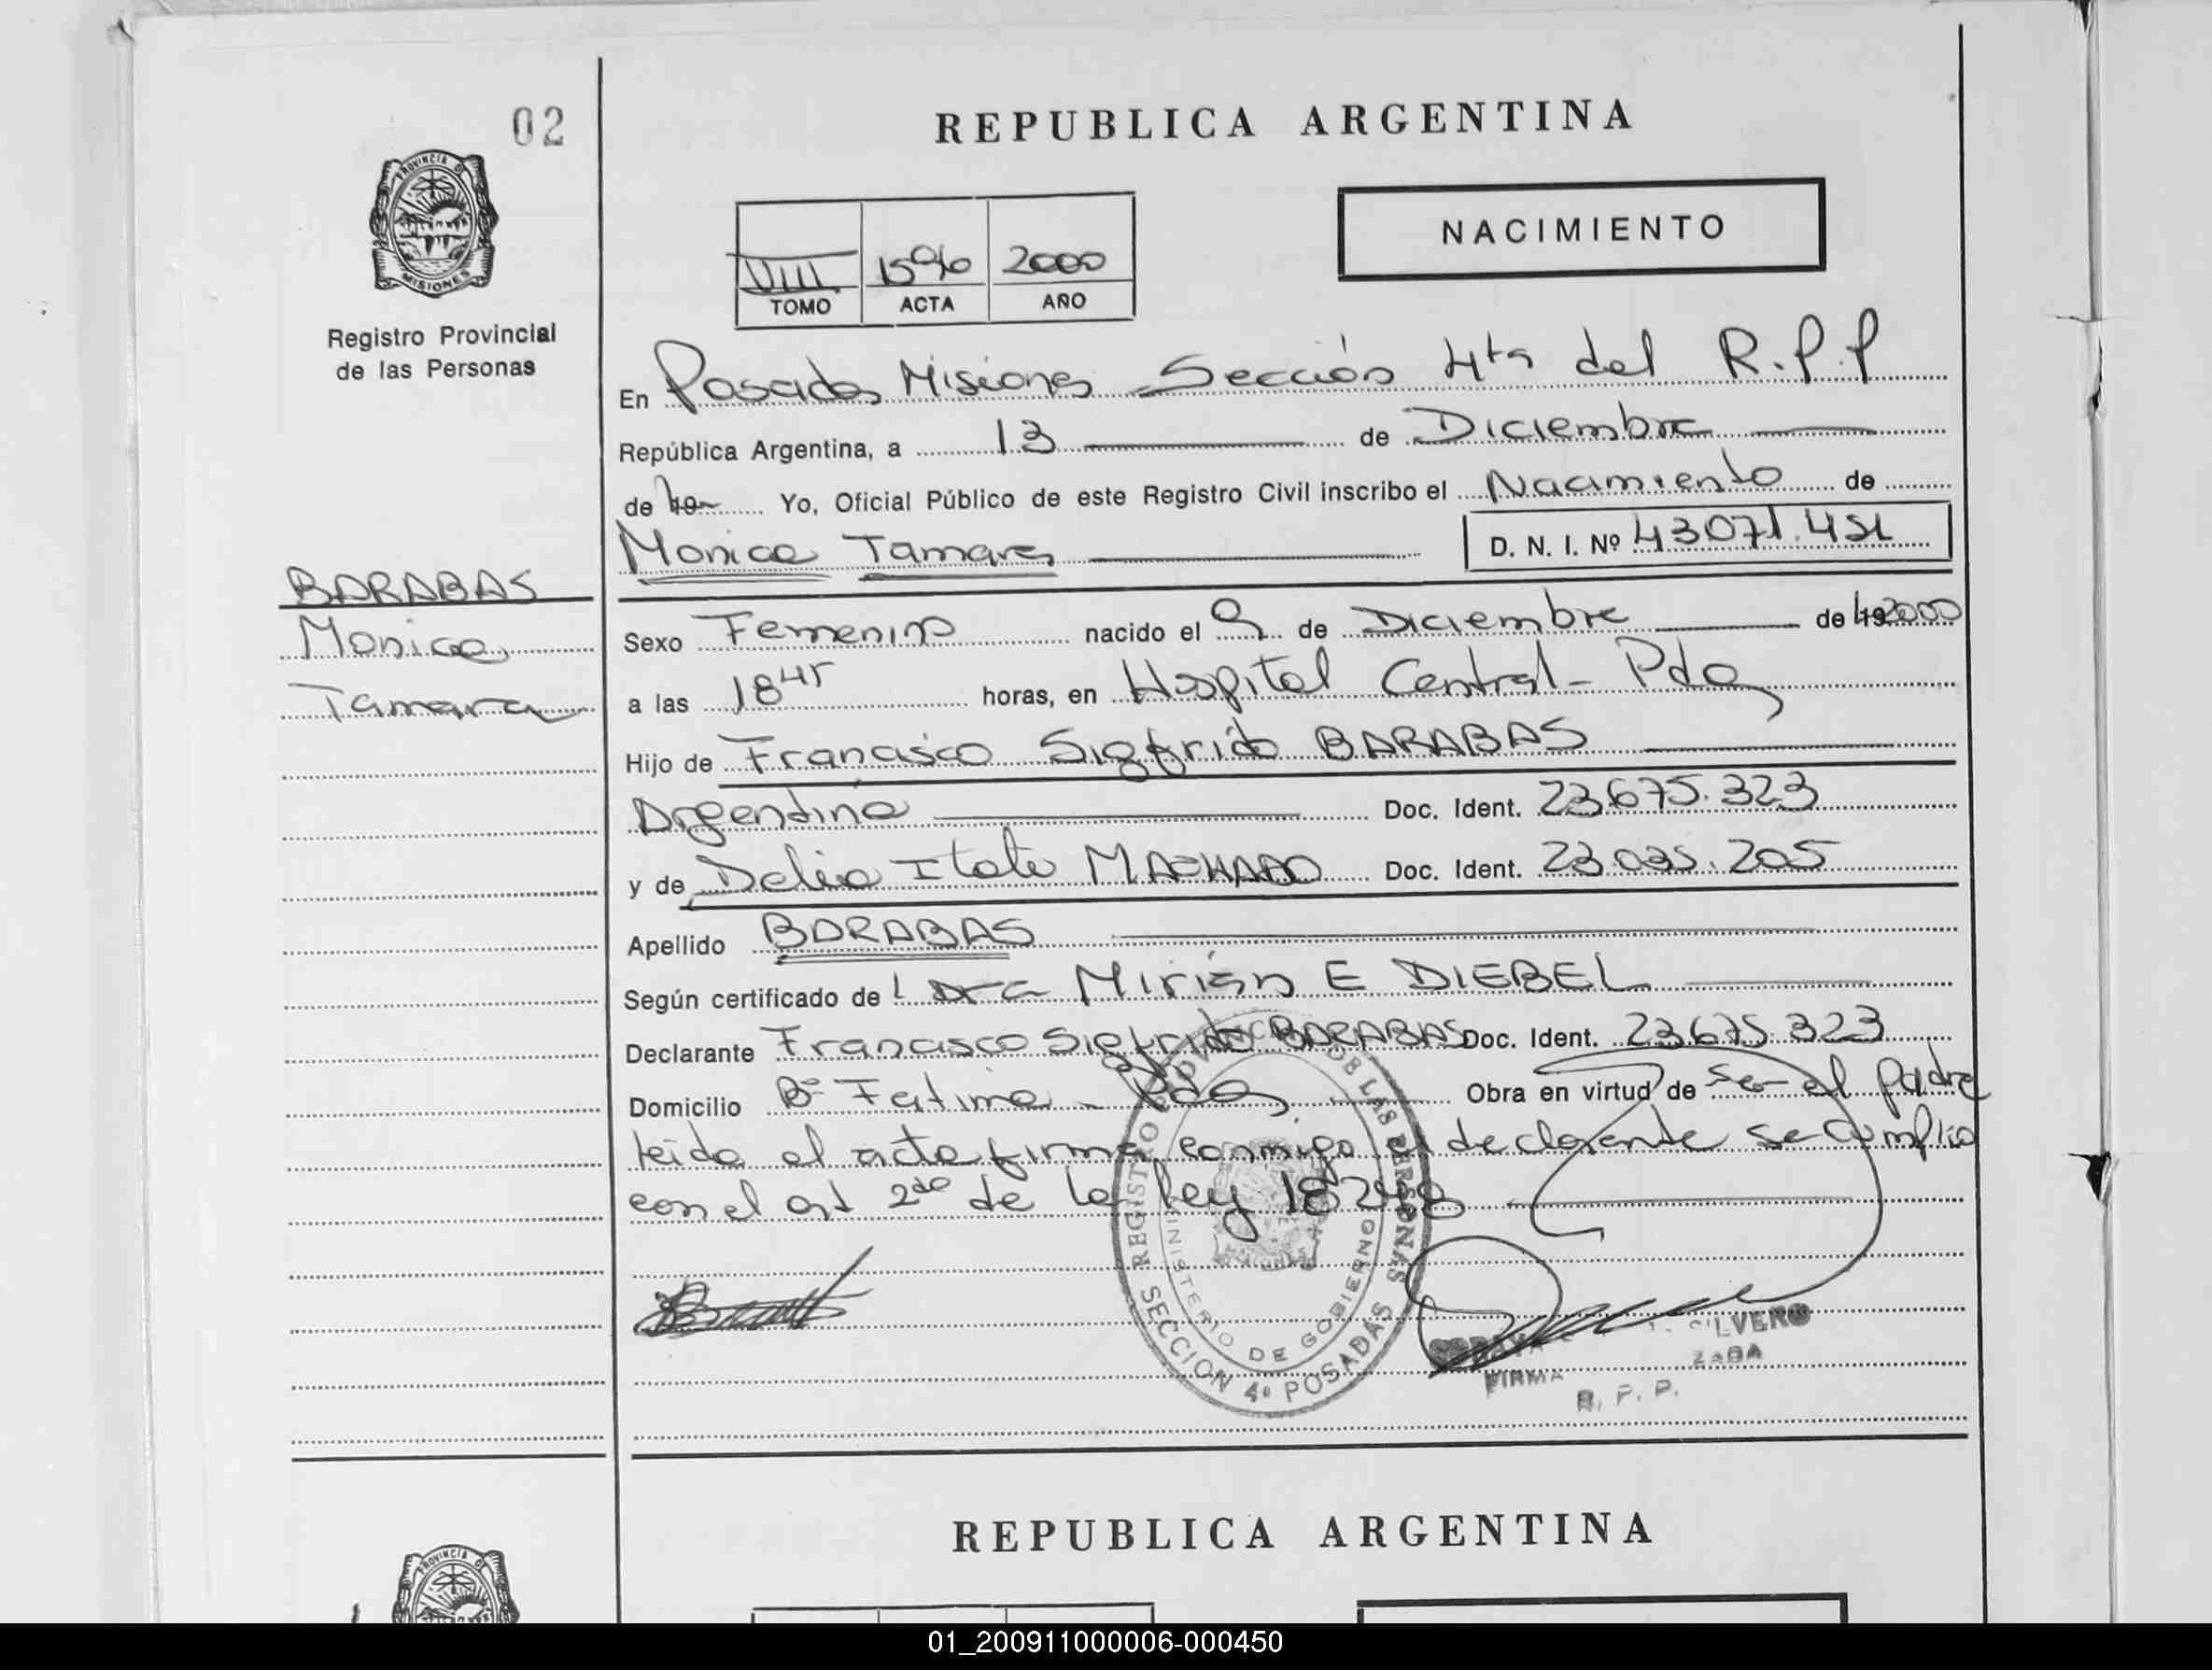 02
REPUBLICA ARGENTINA
PROVINCIA DE
MISIONES
NACIMIENTO
VIII 1590 2000
TOMO ACTA AÑO
Registro Provincial
de las Personas
En Posadas Misiones Sección 4ta del R.P.P
República Argentina, a 13 de Diciembre
de 19 Yo, Oficial Público de este Registro Civil inscribo el Nacimiento de
Monica Tamara D. N. I. Nº 43071.451
BARABAS
Monica
Tamara
Sexo Femenino nacido el 9 de Diciembre de 192000
a las 18 45 horas, en Hospital Central - Pdas
Hijo de Francisco Sigfrido BARABAS
Argentina Doc. Ident. 23.675.323
y de Delia Itati MACHADO Doc. Ident. 23.035.205
Apellido BARABAS
Según certificado de Dra Mirián E DIEBEL
Declarante Francisco Sigfrido BARABAS Doc. Ident. 23.675.323
Domicilio Bº Fatima - Pdas Obra en virtud de ser el padre
leida el acta firma conmigo el declarante se cumplio
con el art 2do de la ley 18248
REGISTRO PROVINCIAL DE LAS PERSONAS
MINISTERIO DE GOBIERNO
SECCION 4º POSADAS
SILVERO
FIRMA
R. P. P.
REPUBLICA ARGENTINA
PROVINCIA DE
01_200911000006-000450